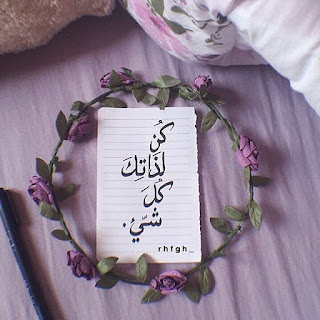 كُن
لذَاتِكَ
كُلَ
شيّء.
rhfgh_